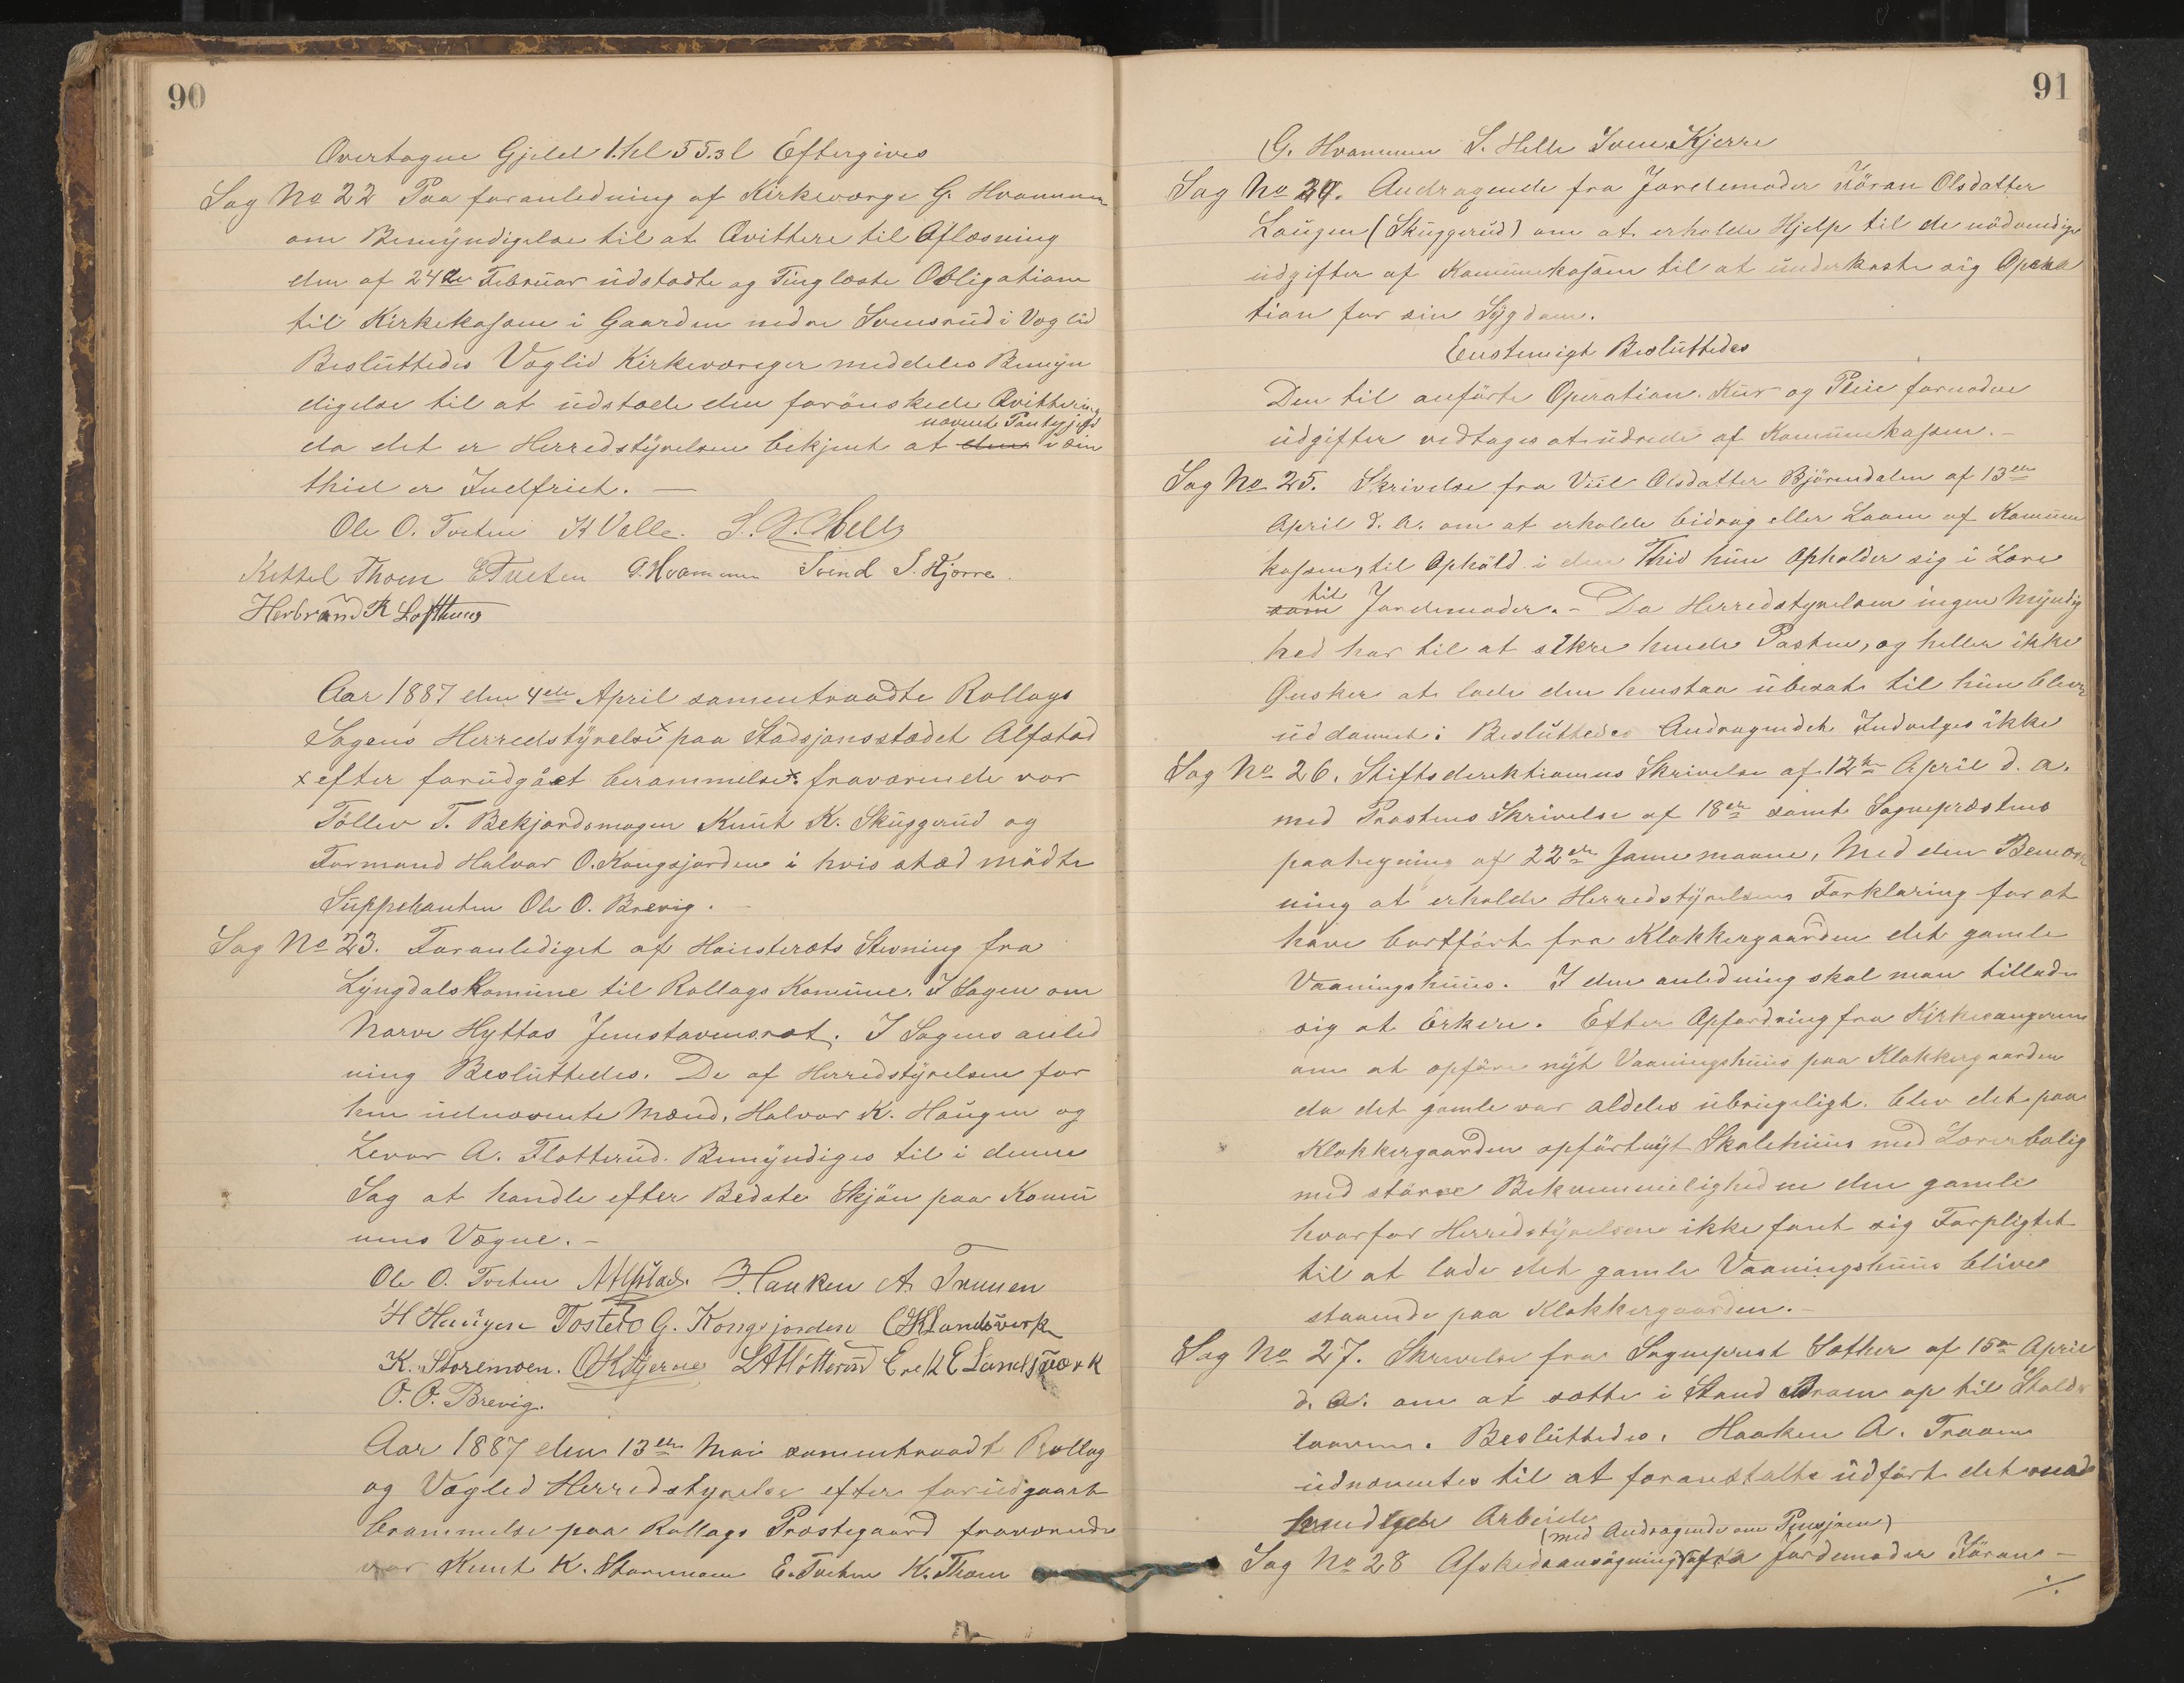 90
Overtagne Gjeld Eftergives
Sag No 22 Paa foranledning af Kirkeværge G. Hvammen
om Bemyndigelse til at Qvittere til Aflæsning
den af 24de Februar udstædte og Tinglæste Obligation
til Kirkekassen i Gaarden nedre Svensrud i Veglid
Besluttedes Veglid Kirkeværger meddeles Bemyn
digelse til at udstæde den forönskede Qvittering
nævnte Pantegjeld
da det er Herredstyrelsen bekjent at den i sin
thid er Indfriet. —
Ole O. Tveten K Valle. S. Helle
Kittel Thoen E Tveten G. Hvammen Svend S. Kjörre.
Herbrand R Lofthuus
Aar 1887 den 4de April samentraadte Rollags
Sogens Herredstyrelse x paa Skadsjonsstædet Alfstad
x efter forudgået berammelse x. fraværende var
Töllev T. Bekjordsmogen Knut K. Skuggerud og
Formand Halvor O. Kongsjorden i hvis stæd mödte
Suppleanten Ole O. Brevig. —
Sag No 23. Foranlediget af Stevning fra
Lyngdals Komune til Rollags Komune. I Sagen om
Narve Hyttas . I Sagens anled
ning Besluttedes. De af Herredstyrelsen for
hen udnævnte Mænd, Halvor K. Haugen og
Levor A. Flotterud. Bemyndiges til i denne
Sag at handle efter Bedste Skjön paa Komu
nens Vægne. —
Ole O. Tveten NAlfstad. Haaken A. Traaen
H Haugen Tosten G. Kongsjorden OKLandsverk
K. Storemoen. OKBjerne LAFlötterud Erek E Landsværk
O. O. Brevig.
Aar 1887 den 13de Mai samentraadt Rollag
og Vægled Herredstyrelse efter forudgaaet
brammelse paa Rollags Præstegaard fraværende
var Knut K. Storemoen E. Tveten K. Thoen
91
G. Hvammen S. Helle Sven Kjerre
Sag No 24. Andragende fra Jordemoder Jöran Olsdatter
Laugen (Skuggerud) om at erholde Hjelp til de nödvendige
udgifter af Komunekassen til at underkaste sig Opera
tion for sin Sygdom.
Enstemigt Besluttedes
Den til anförte Operation. Kur og Pleie fornödne
udgifter vedtages at udrede af Komunekassen. —
Sag No 25. Skrivelse fra Olsdatter Björendalen af 13de
April d. A. om at erholde bidrag eller Laan af Komune
kassen, til Ophold i den Thid hun Opholder sig i Lære
til
som Jordemoder. — Da Herredstyrelsen ingen Myndig
hed har til at sikre hende Posten, og heller ikke
Önsker at lade den henstaa ubesat til hun bliver
uddannet: Besluttedes Andragendet Indvelges ikke
Sag No 26. Stiftsdirektionens Skrivelse af 12te April d. a.
med Provstens Skrivelse af 18de samt Sogneprestens
paategning af 22de samme maane, Med den Bemærk
ning at erholde Herredstyrelsens Forklaring for at
have bortfört fra Klokkergaarden det gamle
Vaaningshuus. I den anledning skal man tillade
sig at Erkere. Efter Opfordring fra Kirkesangeren
om at opföre nyt Vaaningshuus paa Klokkergaarden
da det gamle var aldeles ubrugeligt. blev det paa
Klokkergaarden opfört nyt Skolehuus med Lærerbolig
med större Bekvemmelighed en den gamle
hvorfor Herredstyrelsen ikke fant sig Forpligtet
til at lade det gamle Vaaningshuus blive
staaende paa Klokkergaarden. —
Sag No 27. Skrivelse fra Sogneprest Sother af 15de April
d. A. om at sætte i Stand Broen op til Stald
laaven. Besluttedes. Haaken A. Traaen
udnævntes til at foranstalte udfört det nöd
vendige Arbeide
(med Andragende om Pensjon)
Sag No 28 Afskedsansögning fra Jordemoder Jöran —
./.